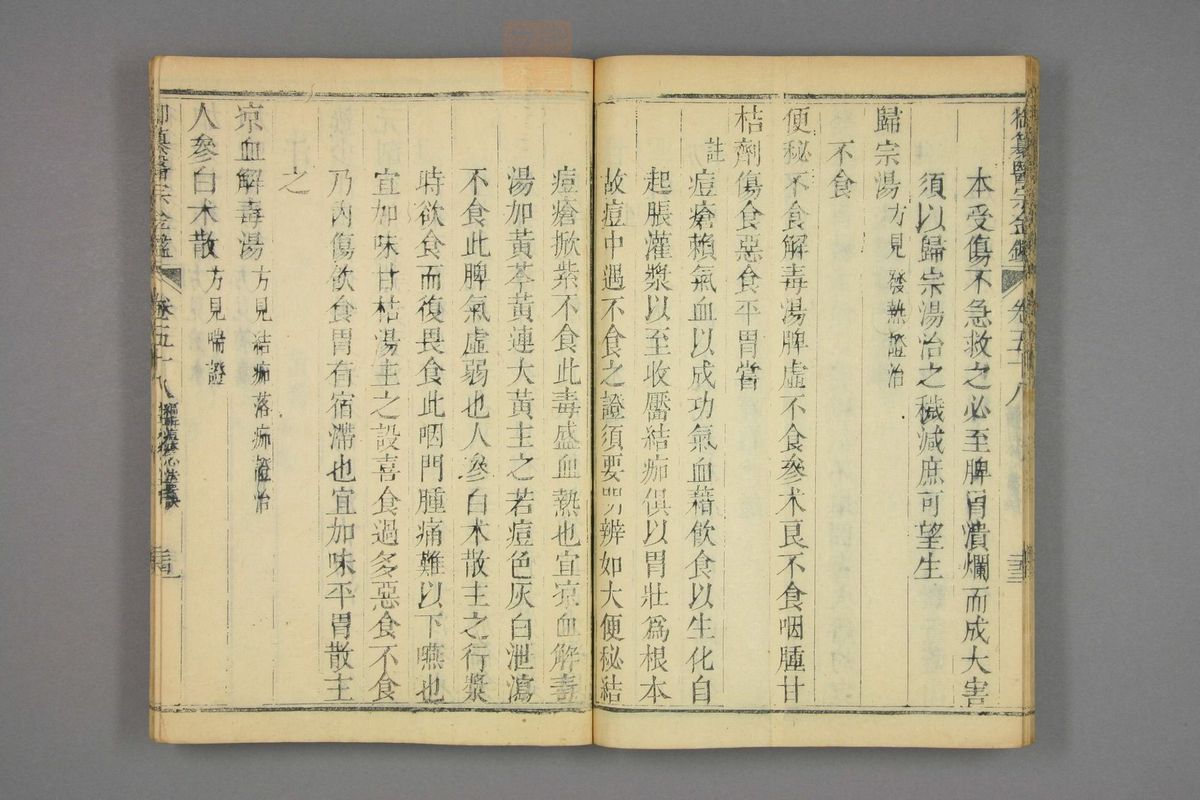 御纂醫宗金鑑 卷五十八
本受傷不急救之必至脾胃潰爛而成大害
須以歸宗湯治之穢減庶可望生
歸宗湯方見發熱證治
不食
便秘不食解毒湯脾虛不食參术良不食咽腫甘
桔劑傷食惡食平胃嘗
註痘瘡賴氣血以成功氣血藉飲食以生化自
起脹灌漿以至收靨結痂俱以胃壯爲根本
故痘中遇不食之證須要明辨如大便秘結
痘瘡掀紫不食此毒盛血熱也宜涼血解毒
湯加黃芩黃連大黃主之若痘色灰白泄瀉
不食此脾氣虛弱也人參白术散主之行漿
時欲食而復畏食此咽門腫痛難以下嚥也
宜加味甘桔湯主之設喜食過多惡食不食
乃內傷飲食胃有宿滯也宜加味平胃散主
之
涼血解毒湯方見結痂落痂證治
人參白术散方見喘證
御纂醫宗金鑑 卷五十八